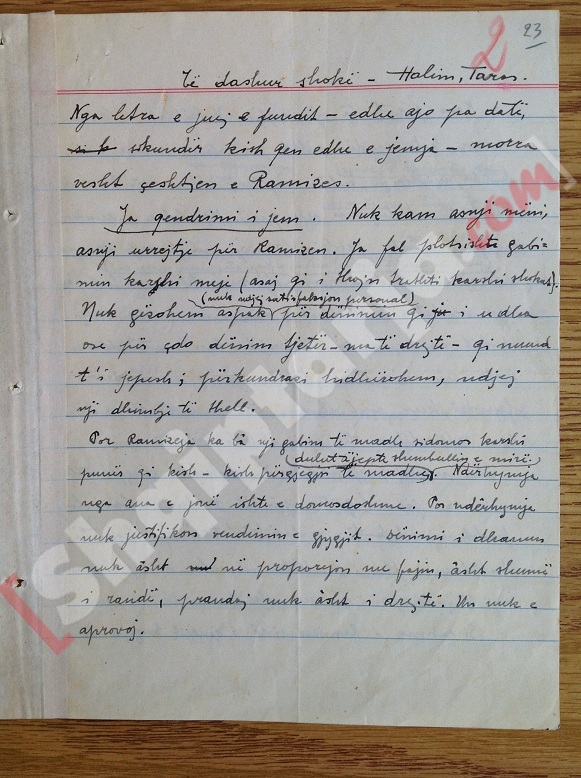 23
2
Të dashur shokë – Halim, Taras.
Nga letra e juej e fundit – edhe ajo pa datë,
shkundër kish qen edhe e jemja – morra
vesht çeshtjen e Ramizes.
Ja qendrimi i jem. Nuk kam asnji mëni,
asnji urrejtje për Ramizen. Ja fal plotsisht gabi-
min karshi meje (asaj qi i thojn trathti karshi shokut).
(nuk ndjej satisfaksjon personal)
Nuk gëzohem aspak për dënimin qi i u dha
ose për çdo dënim tjetër – ma të drejtë – qi mund
t'i jepesh; përkundrazi hidhërohem, ndjej
nji dhimbje të thell.
Por Ramizeja ka bâ nji gabim të madh sidomos karshi
duhet t'i jepte shembullin e mirë
punës qi kish – kish përgjegjsi të madhe. Ndërhymja
nga ana e jonë ishte e domosdoshme. Por ndërhymja
nuk justifikon vendimin e gjygjit. Dënimi i dhanun
nuk âsht në proporcjon me fajin, âsht shumë
i randë, prandaj nuk âsht i drejtë. Un nuk e
aprovoj.
[Shqiptarja.com]